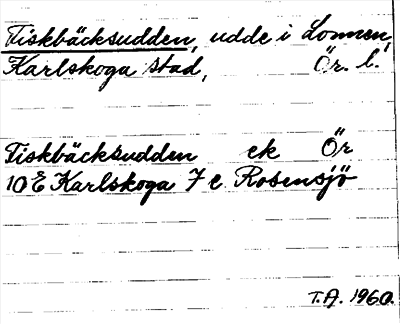 Fiskbäcksudden, udde i Lonnen,
Karlskoga stad, Ör. l.
Fiskbäcksudden ek Ör
10 E Karlskoga 7 e Rosensjö
T.A. 1960.